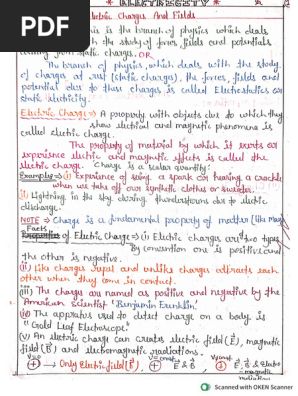 PDF
* ELECTRICITY *
Electric Charges And Fields
this is the branch of physics which deals
with the study of forces, fields and potentials
from static charges. OR
The branch of physics which deals with the study
of charges at rest (static charges), the forces, fields and
potential due to these charges is called Electrostatics or
static electricity.
Electric Charge ⇒ A property with objects due to which they
show electrical and magnetic phenomena is
called electric charge.
The property of material by which it exerts or
experience electric and magnetic effects is called the
electric charge. Charge is a scalar quantity.
Examples → (i) Experience of seeing a spark or hearing a crackle
when we take off our synthetic clothes or sweater.
(ii) Lightning in the sky during thunderstorms due to electric
discharge.
NOTE → Charge is a fundamental property of matter (like mass)
Facts
Properties of Electric Charge ⇒ (i) Electric charges are two types
By convention one is positive and
the other is negative.
(ii) Like charges repel and unlike charges attracts each
other when they come in contact.
(iii) The charges are named as positive and negative by the
American Scientist 'Benjamin Franklin'
(iv) The apparatus used to detect charge on a body is
"Gold Leaf Electroscope"
(v) An electric charge can creates electric field (E), magnetic
field (B) and electromagnetic radiations.
v=0 v=const.
+ → Only Electric field (E), + E & B + E, B & Electro
magnetic
radiations
Scanned with OKEN Scanner